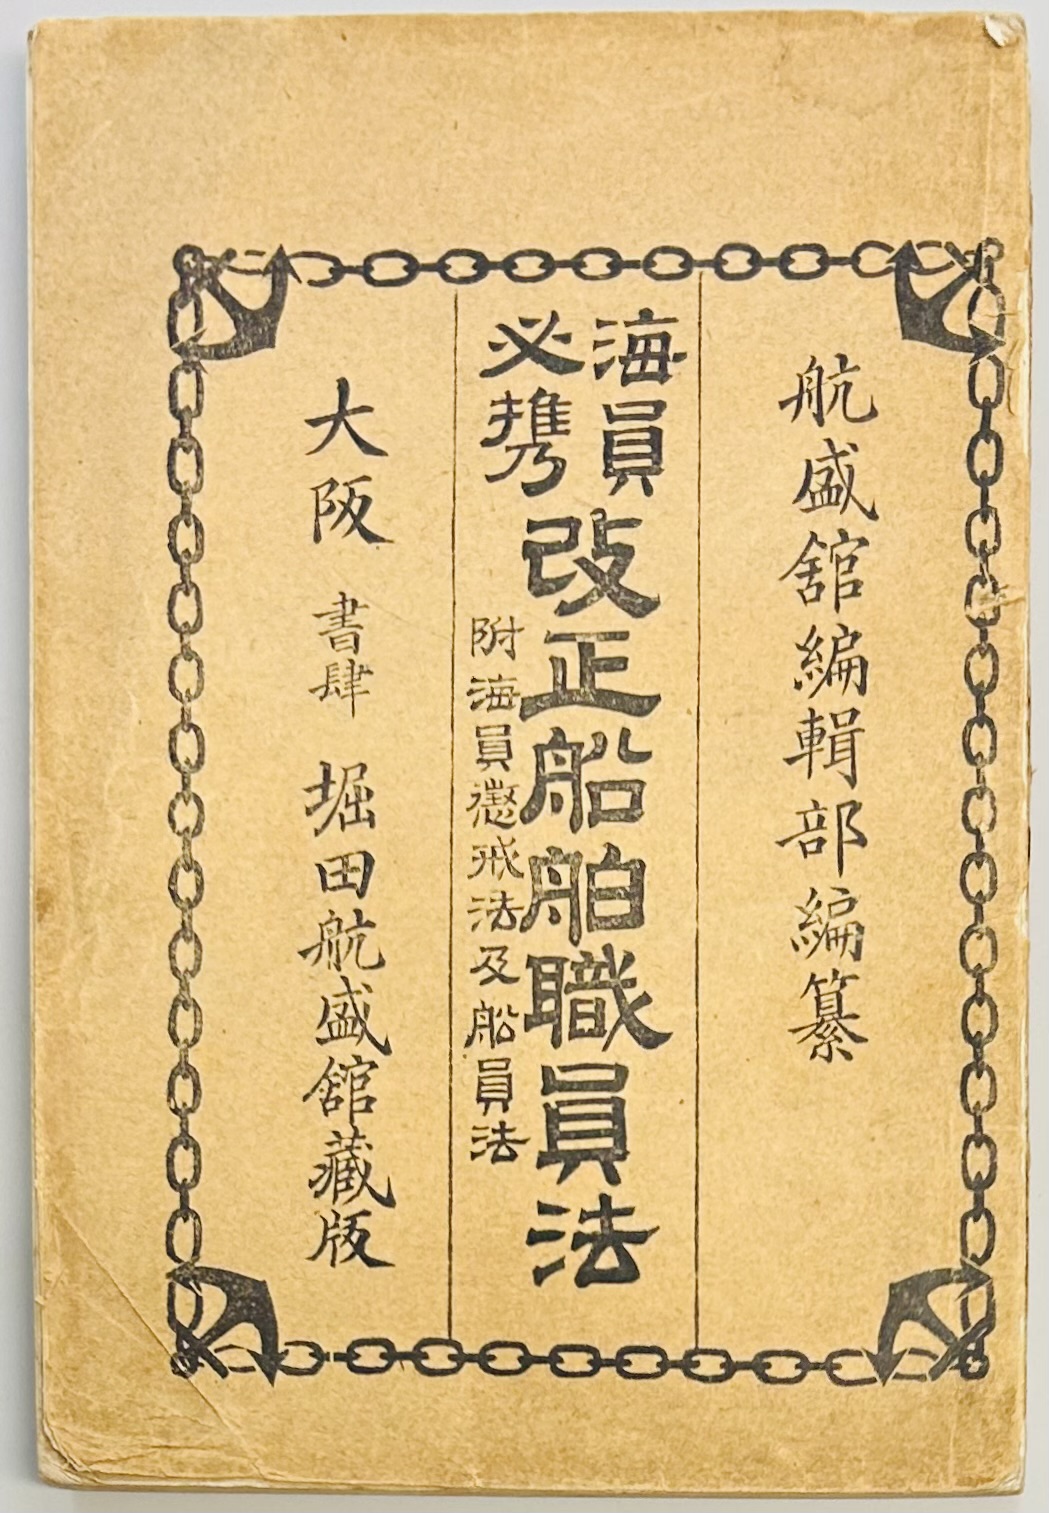 航盛舘編輯部編纂
海員
必携
改正船舶職員法
附海員懲戒法及船員法
大阪 書肆 堀田航盛舘藏版